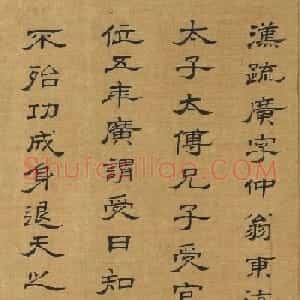 漢疏廣字仲翁東海
太子太傅兄子受官
位五年廣謂受曰知
不殆功成身退天之
Shufaziliao.com